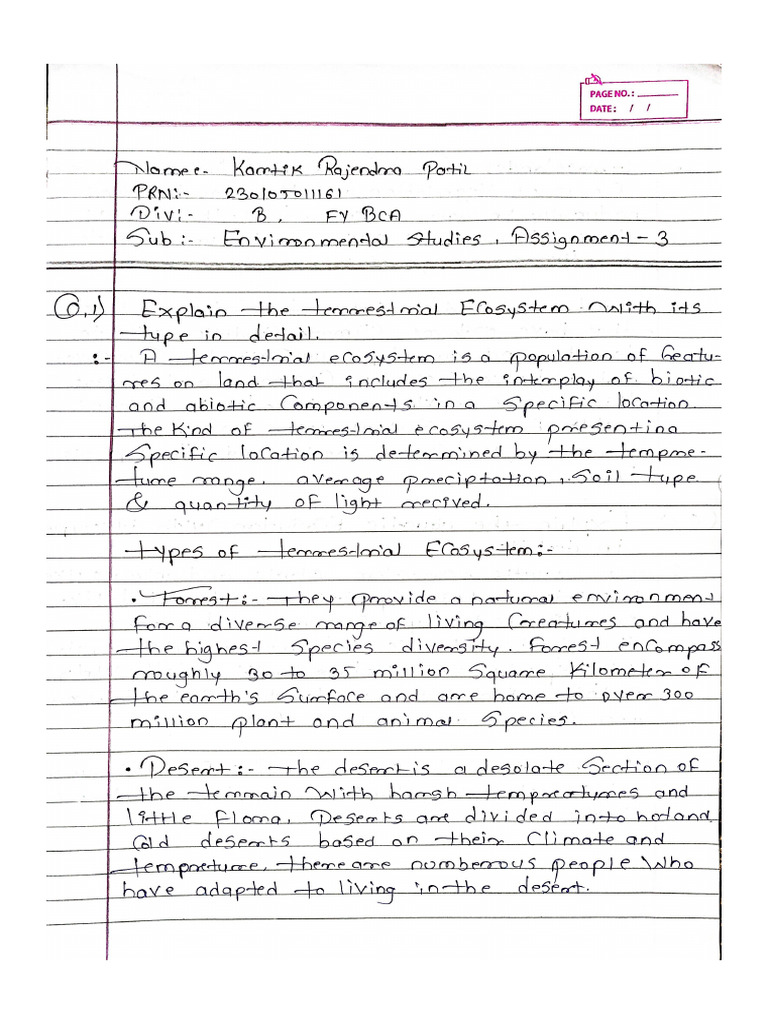 PAGE NO.:
DATE: / /
Name:- Kartik Rajendra Patil
PRN:- 230105011161
Div:- B, FY BCA
Sub:- Environmental Studies, Assignment-3
Q.1) Explain the terrestrial Ecosystem With its
type in detail.
:- A terrestrial ecosystem is a population of Geatu-
res on land that includes the interplay of biotic
and abiotic Components in a Specific location
The Kind of terrestrial ecosystem present in a
Specific location is determined by the tempre-
ture range, average preciptation, Soil type
& quantity of light recived.
Types of terrestrial Ecosystem:-
• Forrest:- They provide a natural environment
for a diverse range of living Creatures and have
the highest Species diversity. Forrest encompass
roughly 30 to 35 million Square Kilometer of
the earth's Surface and are home to over 300
million plant and animal Species.
• Desert:- The desert is a desolate Section of
the terrain With harsh temprertures and
little Flora. Deserts are divided into hot and
Cold deserts based on their Climate and
tempreture, there are numberous people Who
have adapted to living in the desert.